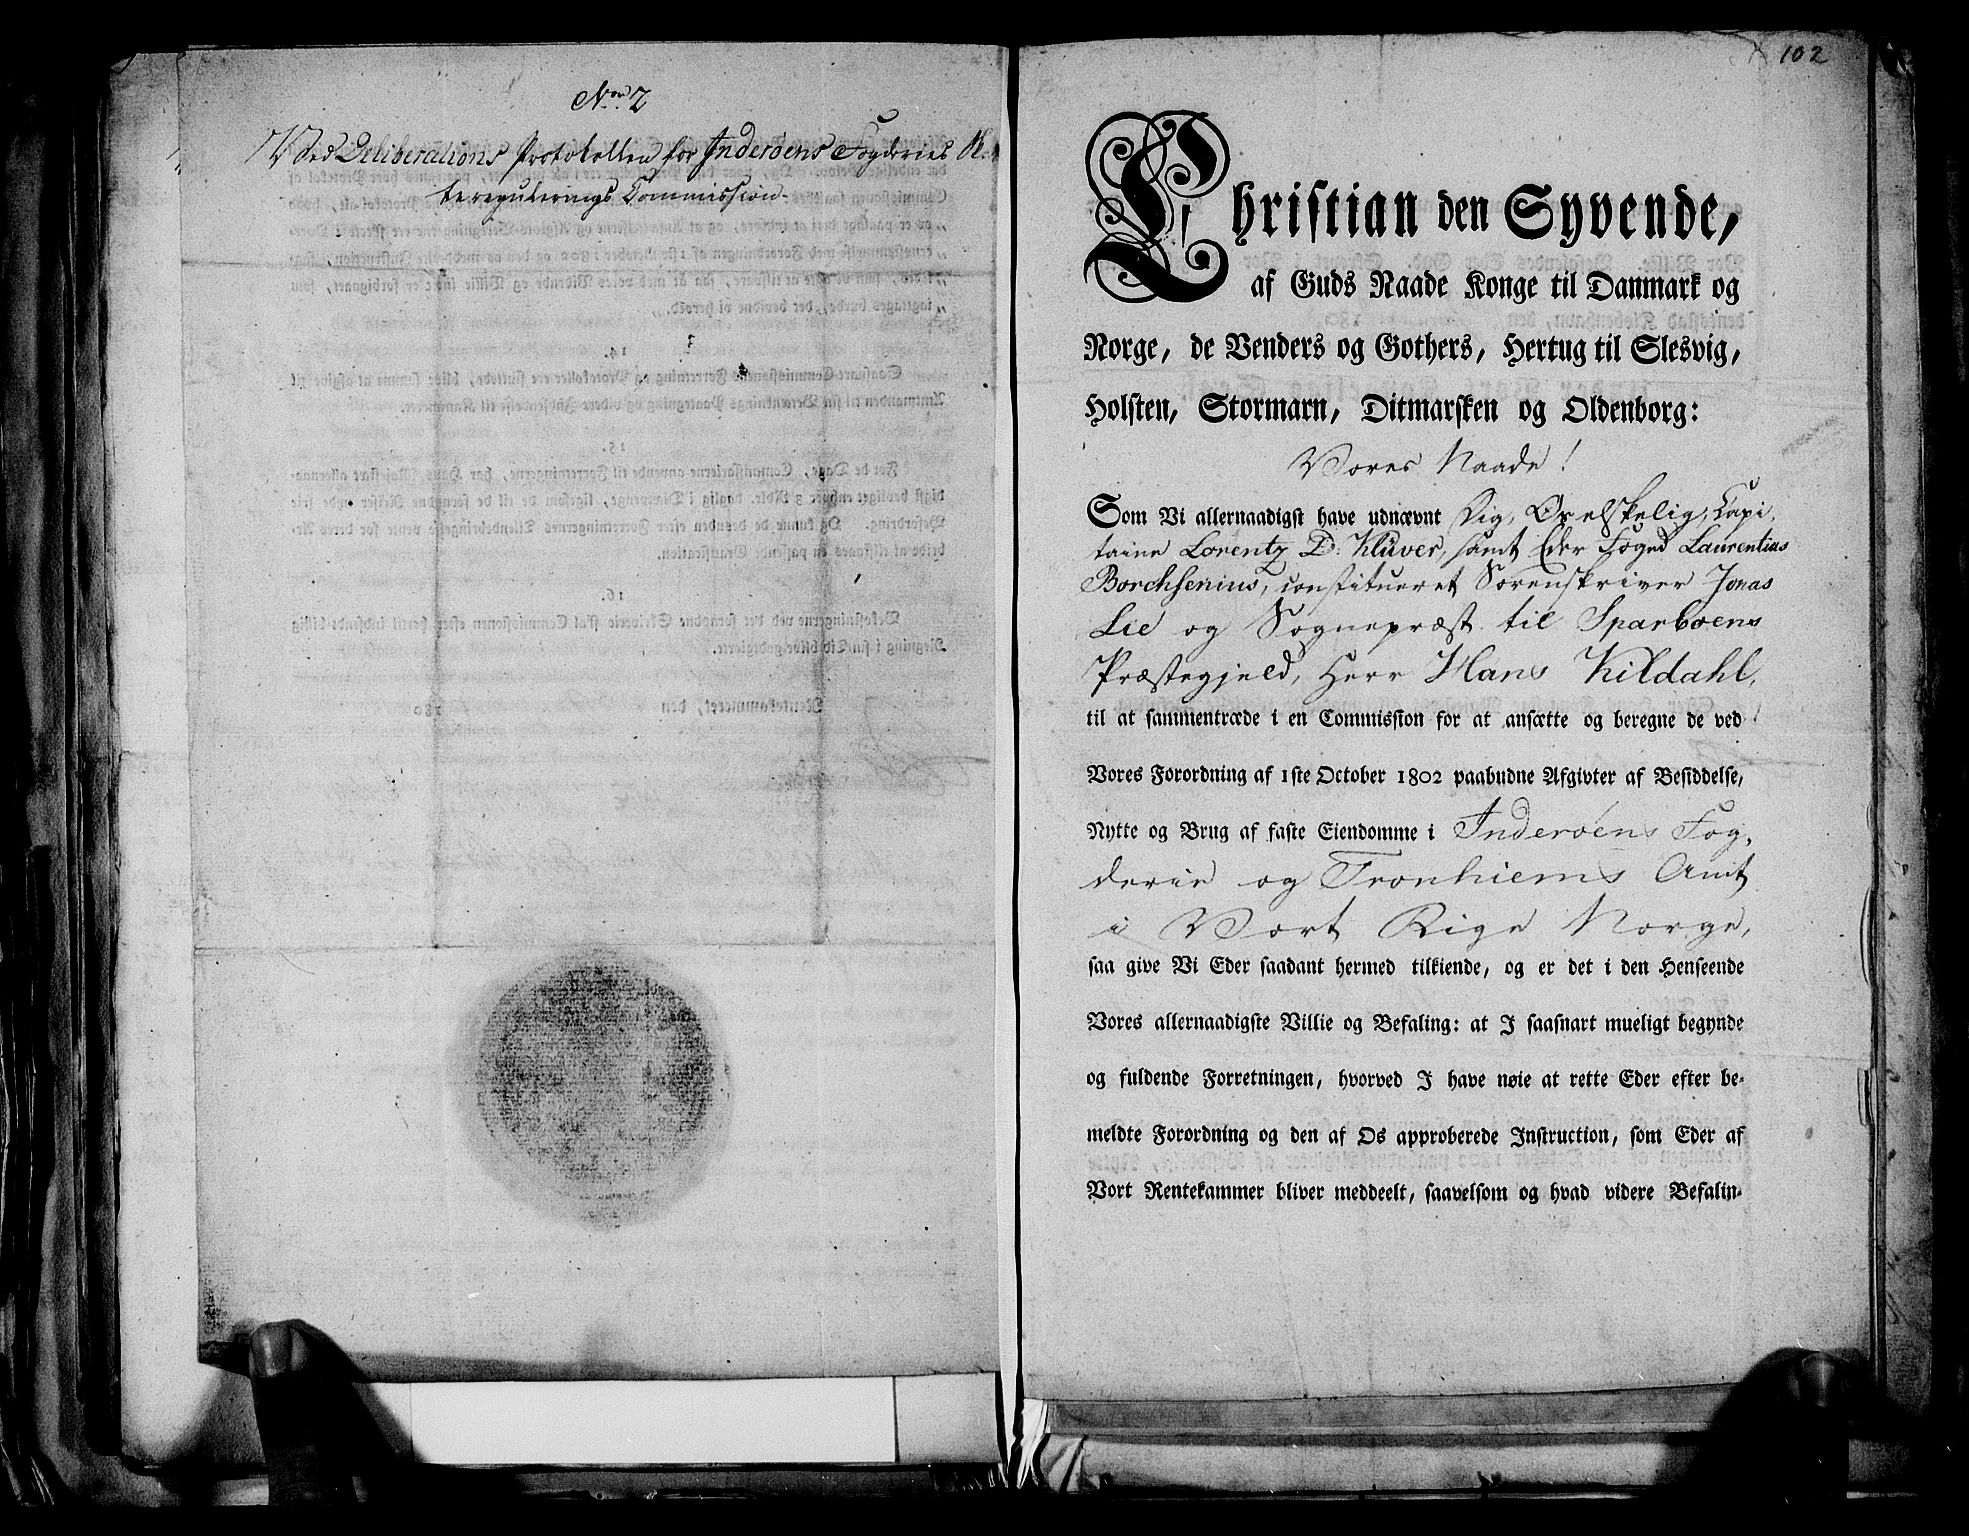 No. 2
Ved Deliberations Protokollen for Inderöens Fogderies Ma-
treregulerings Commission.
102
Christian den Syvende,
af Guds Naade Konge til Danmark og
Norge, de Venders og Gothers, Hertug til Slesvig,
Holsten, Stormarn, Ditmarsken og Oldenborg:
Vores Naade!
Som Vi allernaadigst have udnævnt Dig, Os elskelig, Capi-
taine Lorentz D: Klüver, samt Eder Foged Laurentius
Borchsenius, constitueret Sorenskriver Jonas
Lie og Sognepræst til Sparboens
Præstegjeld, Herr Hans Kildahl,
til at sammentræde i en Commission for at ansætte og beregne de ved
Vores Forordning af 1ste October 1802 paabudne Afgivter af Besiddelse,
Nytte og Brug af faste Eiendomme i Inderöens Fog-
derie og Tronhiems Amt
i Vort Rige Norge,
saa give Vi Eder saadant hermed tilkiende, og er det i den Henseende
Vores allernaadigste Villie og Befaling: at I saasnart mueligt begynde
og fuldende Forretningen, hvorved I have nøie at rette Eder efter be-
meldte Forordning og den af Os approberede Instruction, som Eder af
Vort Rentekammer bliver meddeelt, saavelsom og hvad videre Befalin-